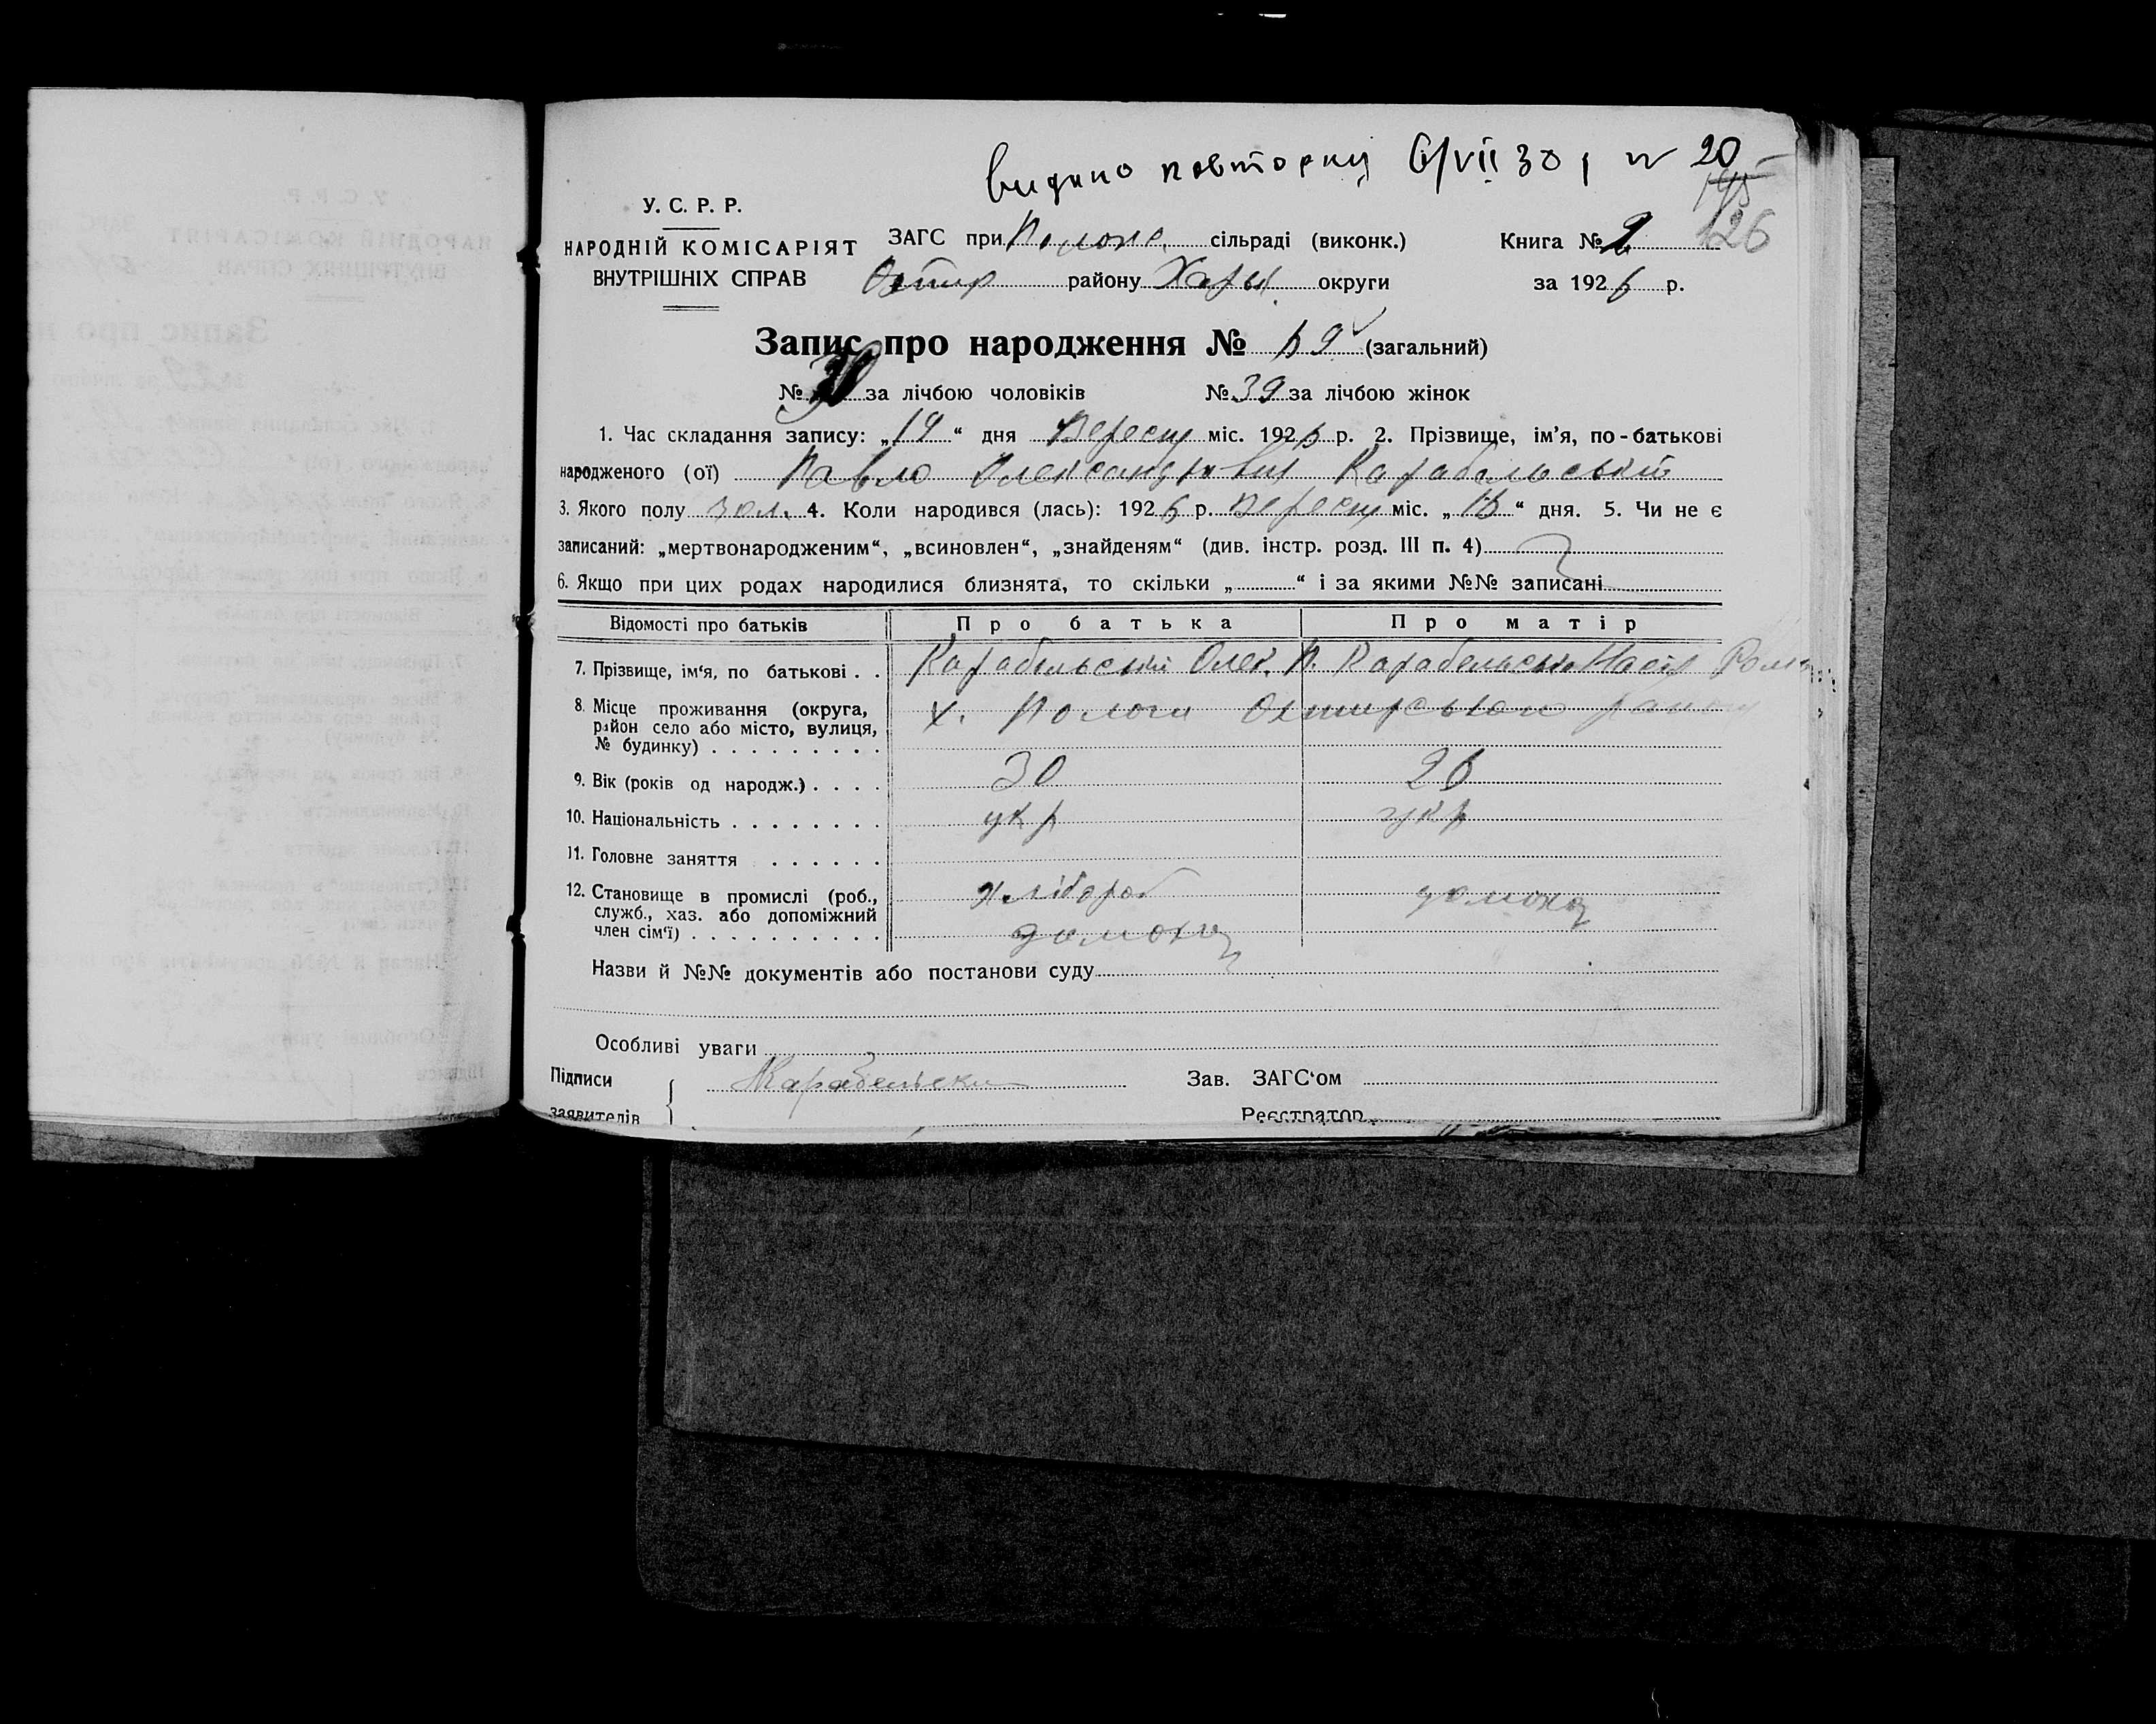 видано повторку 6/VII 30 р № 20
145
126
У. С. Р. Р.
НАРОДНІЙ КОМІСАРІЯТ
ВНУТРІШНІХ СПРАВ
ЗАГС при Полоне. сільраді (виконк.) Книга № 2
Охтир району Харьк. округи за 1926 р.
Запис про народження № 69 (загальний)
№ 30 за лічбою чоловіків № 39 за лічбою жінок
1. Час складання запису: „19“ дня Вересня міс. 1926 р. 2. Прізвище, ім'я, по-батькові
народженого (ої) Павло Олександрович Карабельській
3. Якого полу чол. 4. Коли народився (лась): 1926 р. Вересня міс. „16“ дня. 5. Чи не є
записаний: „мертвонародженим“, „всиновлен“, „знайденям“ (див. інстр. розд. III п. 4)
6. Якщо при цих родах народилися близнята, то скільки „ “ і за якими №№ записані
Відомості про батьків Про батька Про матір
7. Прізвище, ім'я, по батькові . . Карабельській Олек. П. Карабельська Насія Ром
8. Місце проживання (округа, район село або місто, вулиця, № будинку) . . . . . . . . . х. Пологи Охтирського району
9. Вік (років од народж.) . . . . 30 26
10. Національність . . . . . . . . укр укр
11. Головне заняття . . . . . .
12. Становище в промислі (роб., служб., хаз. або допоміжний член сім'ї) . . . . . . . . . . хлібороб домохоз
домохоз
Назви й №№ документів або постанови суду
Особливі уваги
Підписи Карабельски Зав. ЗАГС'ом
заявителів Реєстратор